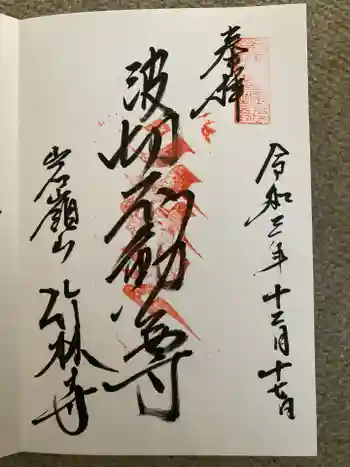 奉拝
令和三年十二月十七日
波切不動尊
岩嶺山
弘林寺